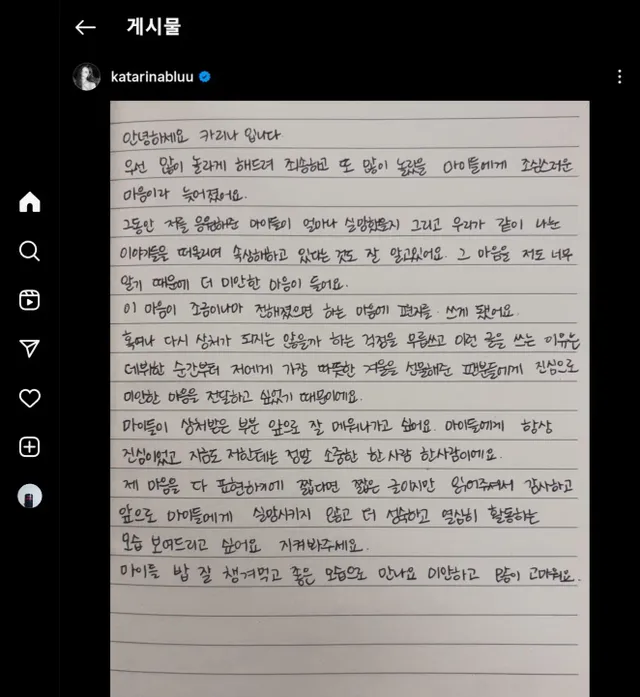 게시물
katarinabluu
안녕하세요 카리나 입니다
우선 많이 놀라게 해드려 죄송하고 또 많이 놀랐을 마이들에게 조심스러운
마음이라 늦어졌어요.
그동안 저를 응원해준 마이들이 얼마나 실망했을지 그리고 우리가 같이 나눈
이야기들을 떠올리며 속상해하고 있다는 것도 잘 알고있어요. 그 마음을 저도 너무
알기 때문에 더 미안한 마음이 들어요.
이 마음이 조금이나마 전해졌으면 하는 마음에 편지를 쓰게 됐어요.
혹여나 다시 상처가 되지는 않을까 하는 걱정을 무릅쓰고 이런 글을 쓰는 이유는
데뷔한 순간부터 저에게 가장 따뜻한 겨울을 선물해준 팬분들에게 진심으로
미안한 마음을 전달하고 싶었기 때문이에요.
마이들이 상처받은 부분 앞으로 잘 메워나가고 싶어요. 마이들에게 항상
진심이었고 지금도 저한테는 정말 소중한 한사람 한사람이에요.
제 마음을 다 표현하기에 짧다면 짧은 글이지만 읽어주셔서 감사하고
앞으로 마이들에게 실망시키지 않고 더 성숙하고 열심히 활동하는
모습 보여드리고 싶어요 지켜봐주세요.
마이들 밥 잘 챙겨먹고 좋은 모습으로 만나요 미안하고 많이 고마워요.